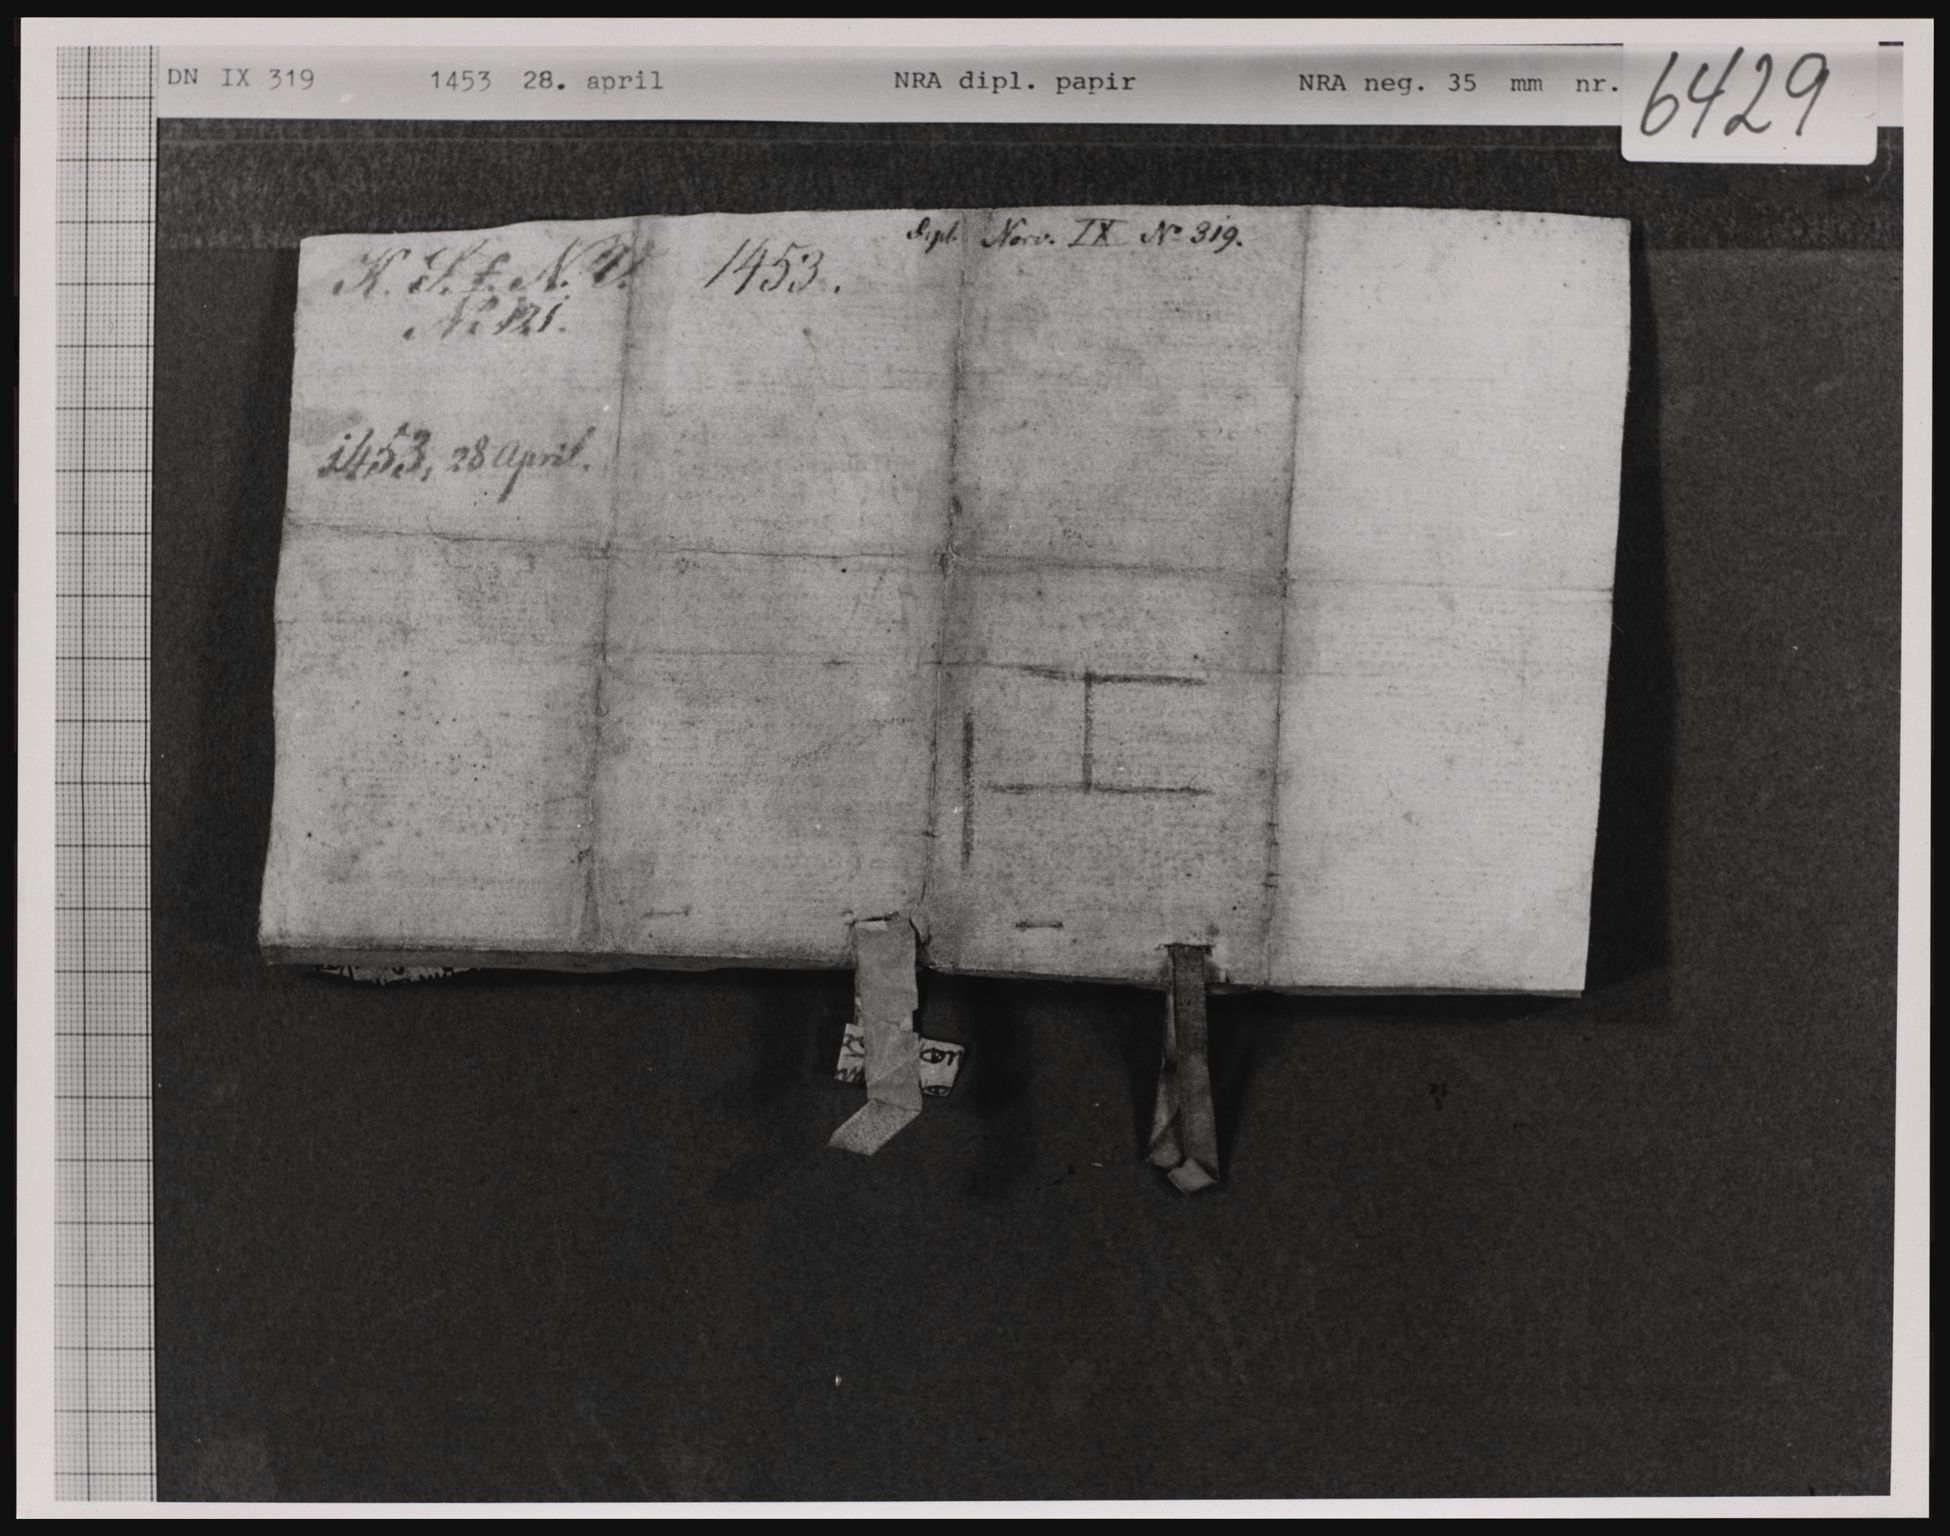 DN IX 319 1453 28. april NRA dipl. papir NRA neg. 35 mm nr. 6429
Dipl. Norv. IX Nº 319.
K. S. f. N. V. 1453.
Nº 121.
1453, 28 April.